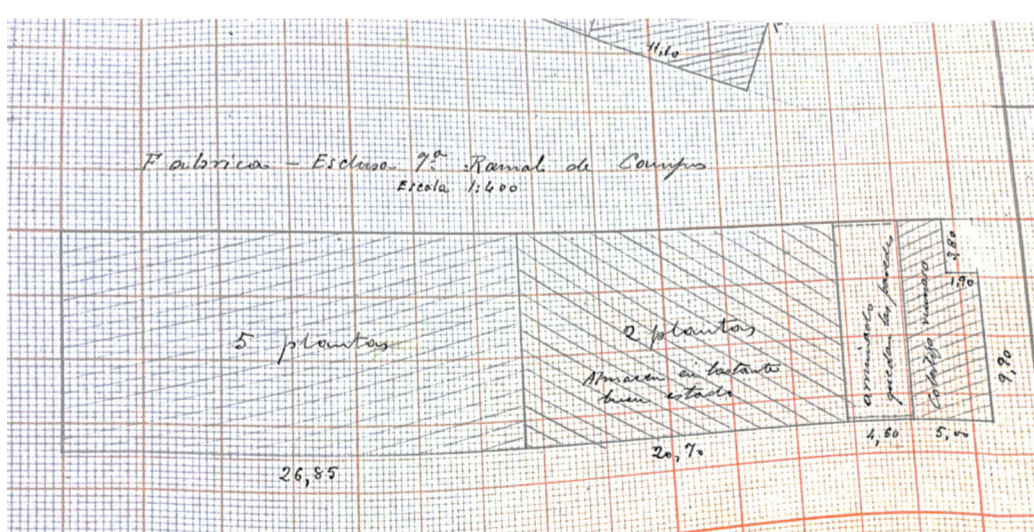 11,60
Fabrica - Esclusa 7ª Ramal de Campos
Escala 1:400
5 plantas
2 plantas
Almacen en bastante
buen estado
arruinado
quedan las paredes
Cobertizo ruinoso
3,80
1,90
9,90
26,85
20,70
4,60
5,00